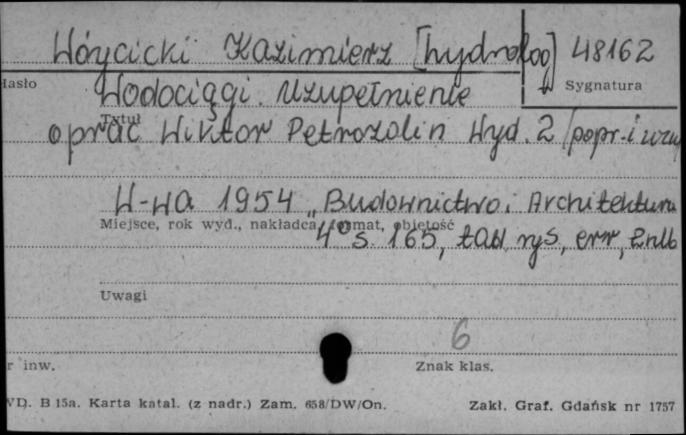 Wóycicki Kazimierz [hydrolog] 48162
Hasło Sygnatura
Wodociągi. Uzupełnienie
Tytuł
oprac Wiktor Petrozolin Wyd. 2 /popr. i uzu
W-wa 1954 „Budownictwo i Architektura
Miejsce, rok wyd., nakładca, format, objętość
4° s. 165, tabl rys., err, 2nlb
Uwagi
6
r inw. Znak klas.
WD. B 15a. Karta katal. (z nadr.) Zam. 658/DW/On. Zakł. Graf. Gdańsk nr 1757